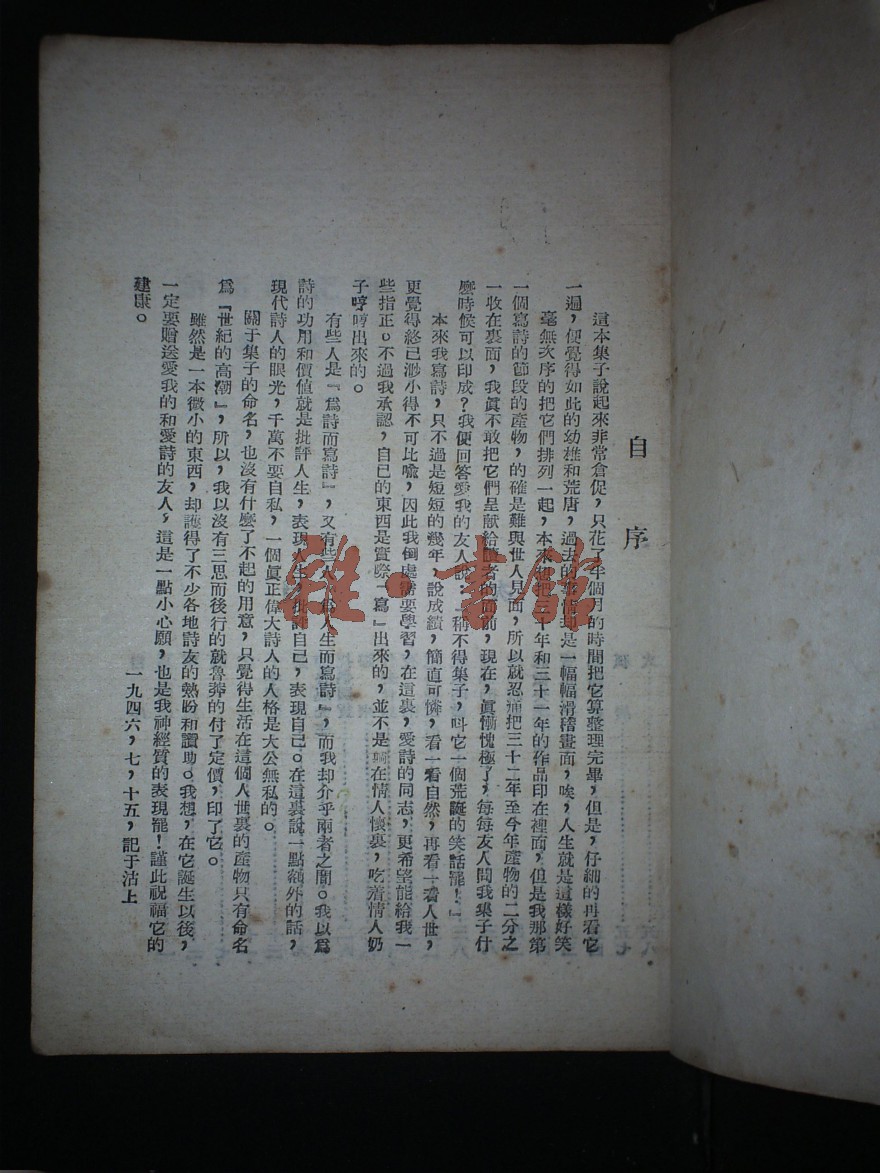 自序
這本集子說起來非常倉促，只花了半個月的時間把它算整理完畢，但是，仔細的再看它
一遍，便覺得如此的幼雄和荒唐，過去的事情却是一幅幅滑稽畫面，唉，人生就是這樣好笑
毫無次序的把它們排列一起，本來想把三十年和三十一年的作品印在裡面，但是我那第
一個寫詩的節段的產物，的確是難與世人見面，所以就忍痛把三十二年至今年產物的二分之
一收在裏面，我眞不敢把它們呈献給讀者的面前，現在，眞慚愧極了，每每友人問我集子什
麽時候可以印成？我便回答愛我的友人說：「稱不得集子，叫它一個荒誕的笑話罷！」
本來我寫詩，只不過是短短的幾年，說成績，簡直可憐，看一看自然，再看一看人世，
更覺得終己渺小得不可比喩，因此我倒處需要學習，在這裏，愛詩的同志，更希望能給我一
些指正。不過我承認，自己的東西是實際「寫」出來的，並不是躺在情人懷裏，吃着情人奶
子哼哼出來的。
有些人是『爲詩而寫詩』，又有些人『爲人生而寫詩』，而我却介乎兩者之間。我以爲
詩的功用和價値就是批評人生，表現人生，批評自己，表現自己。在這裏說一點額外的話，
現代詩人的眼光，千萬不要自私，一個眞正偉大詩人的人格是大公無私的。
關于集子的命名，也沒有什麼了不起的用意，只覺得生活在這個人世裏的產物只有命名
爲『世紀的高潮』，所以，我以沒有三思而後行的就魯莽的付了定價，印了它。
雖然是一本微小的東西，却護得了不少各地詩友的熱盼和讚助。我想，在它誕生以後，
一定要贈送愛我的和愛詩的友人，這是一點小心願，也是我神經質的表現罷！謹此祝福它的
建康。
一九四六，七，十五，記于沽上
雜·書館